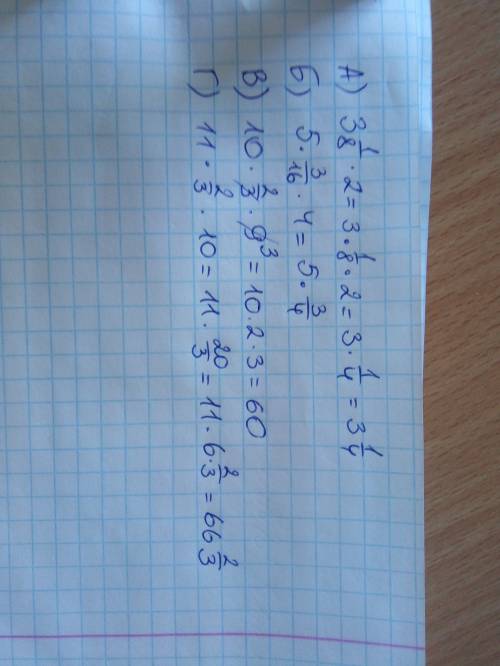 А) 3 1/8 · 2 = 3 · 1/8 · 2 = 3 · 1/4 = 3 1/4
Б) 5 · 3/16 · 4 = 5 · 3/4
В) 10 · 2/3 · 9³ = 10 · 2 · 3 = 60
Г) 11 · 2/3 · 10 = 11 · 20/3 = 11 · 6 · 2/3 = 66 2/3